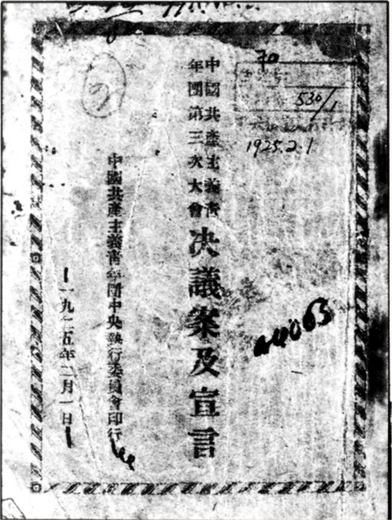 中國共產主義青
年團第三次大會
决議案及宣言
中國共產主義青年團中央執行委員會印行
一九二五年二月一日
20
530/1
1925.2.1
a4063